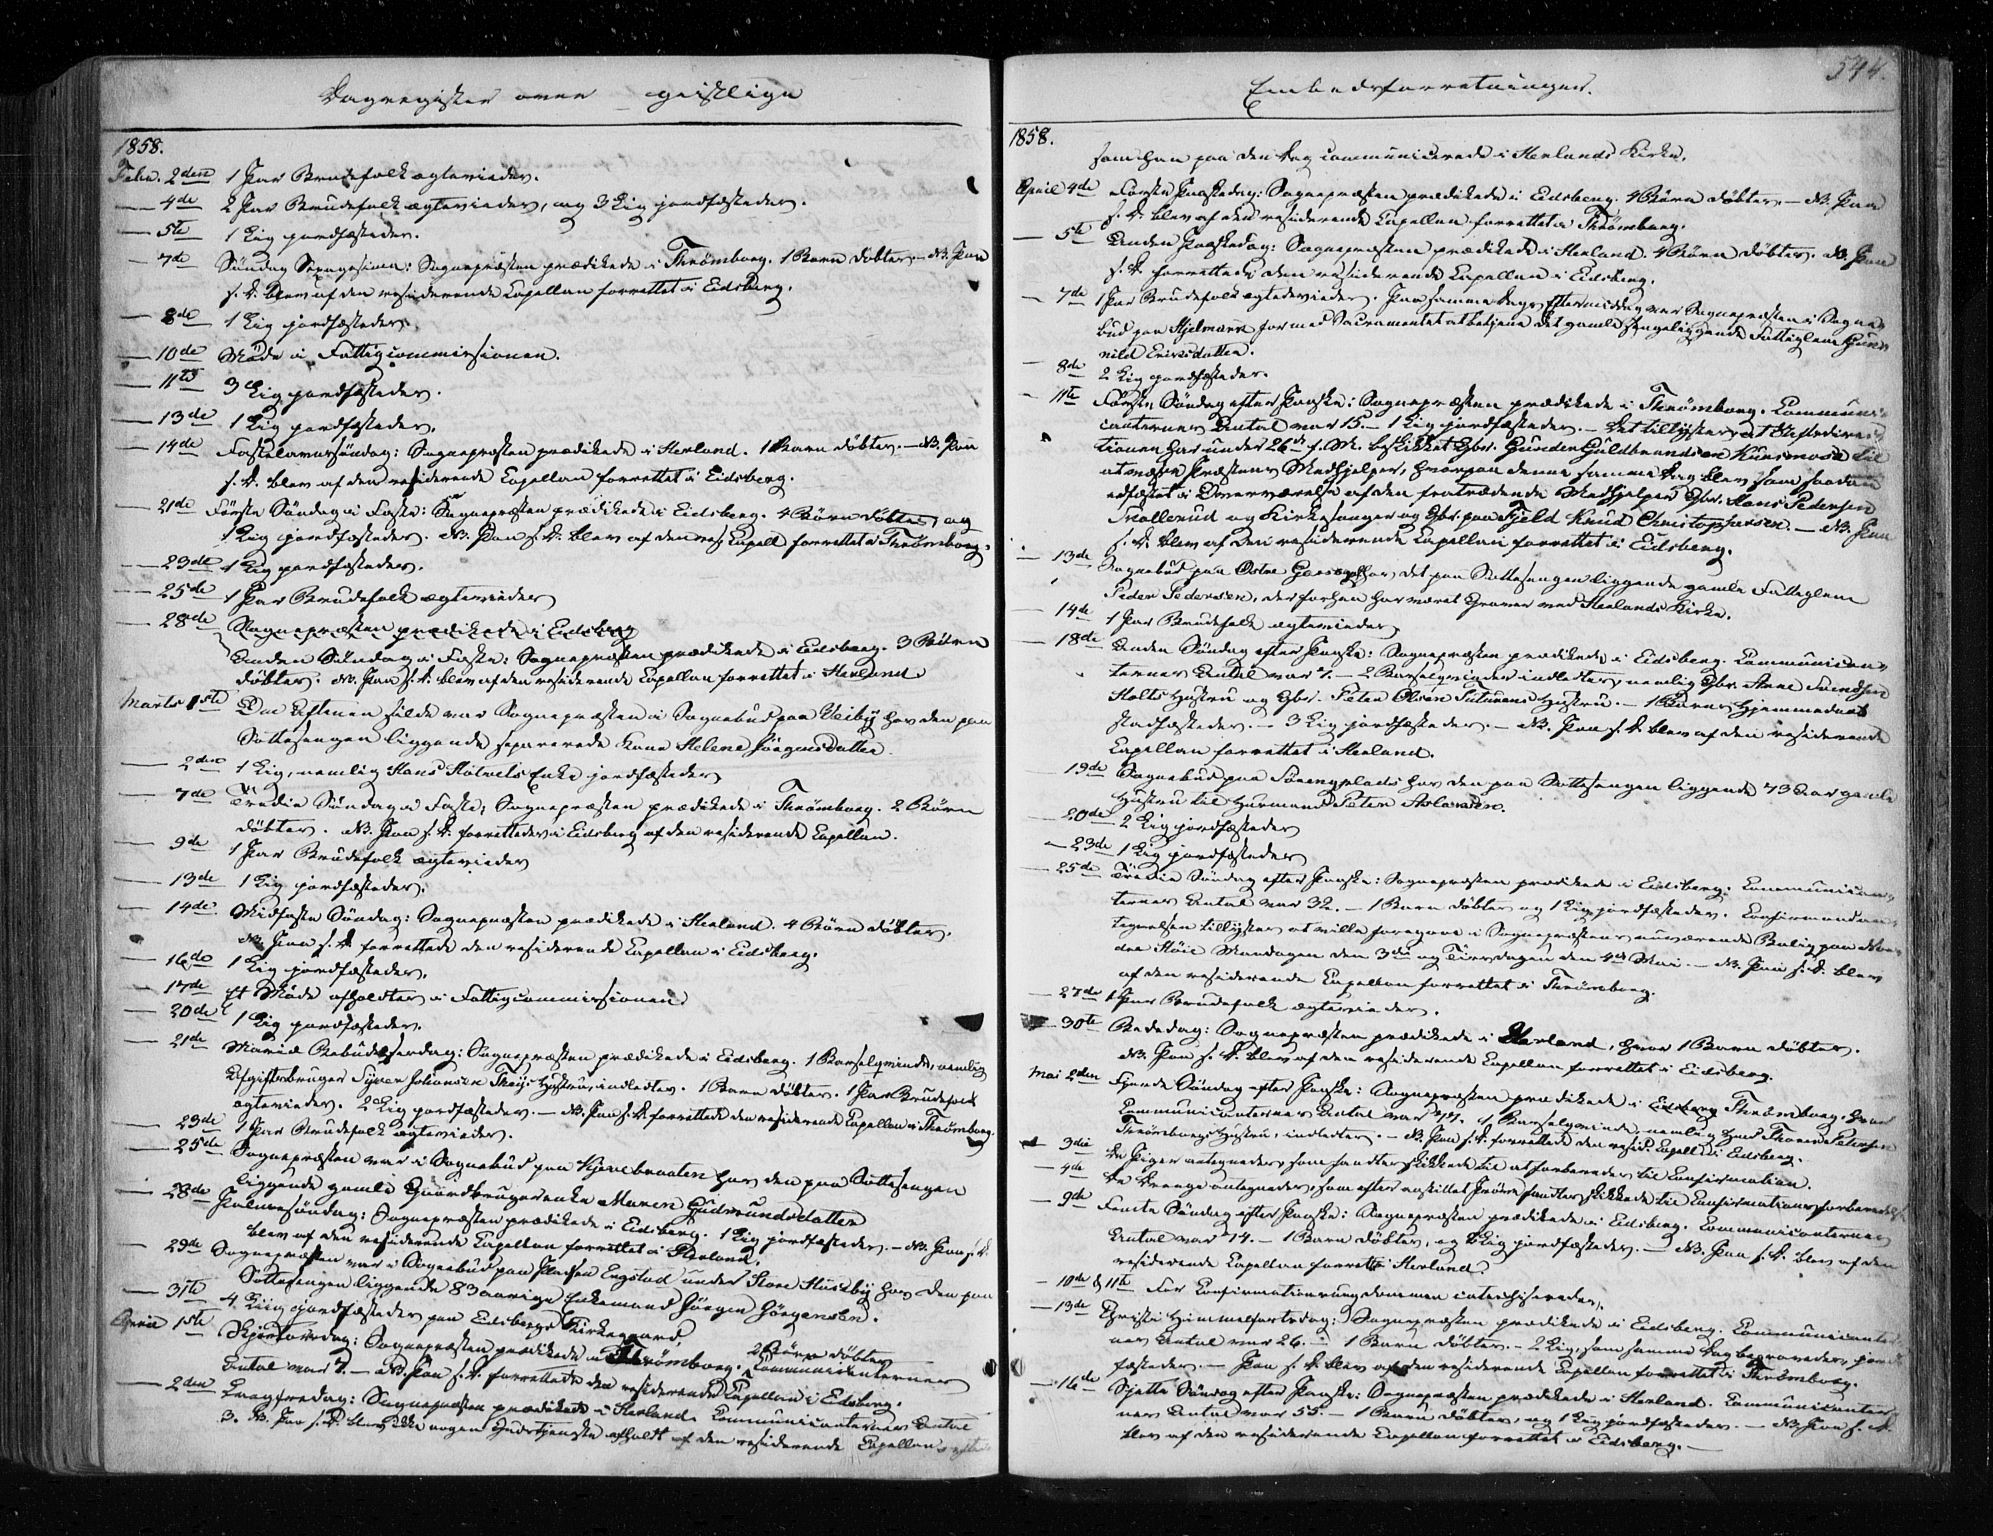 Dagregister over geistlige
1858.
Febr. 2den 1 Par Brudefolk ægtevieder.
— 4de 2 Par Brudefolk ægtevieder, og 3 Lig jordfæsteder.
— 5te 1 Lig jordfæstedes.
— 7de Søndag Sexagesima: Sognepræsten prædikede i Thrømborg. 1 Barn døbtes. — NB. Paa
s. D. blev af den residerende Capellan forrettet i Eidsberg.
— 8de 1 Lig jordfæstedes.
— 10de Møde i Fattigcommissionen.
— 11te 3 Lig jordfæstedes.
— 13de 1 Lig jordfæstedes.
— 14de Fastelavnssøndag: Sognepræsten prædikede i Herland. 1 Barn døbtes. — NB. Paa
s. D. blev af den residerende Capellan forrettet i Eidsberg.
— 21de Første Søndag i Faste: Sognepræsten prædikede i Eidsberg. 4 Børn døbtes, og
1 Lig jordfæstedes. NB. Paa s. D. blev af den res. Capell. forrettet i Thrømborg.
— 23de 1 Lig jordfæstedes.
— 25de 1 Par Brudefolk ægtevieder
— 28de Sognepræsten prædikede i Eidsberg
Anden Søndag i Faste: Sognepræsten prædikede i Eidsberg. 3 Børn
døbtes. NB. Paa s. D. blev af den residerende Capellan forrettet i Herland.
Marts 1ste Om Aftenen silde var Sognepræsten i Sognebud paa Veiby hos den paa
Sottesengen liggende separerede Kone Helene Jørgensdatter.
— 2den 1 Lig, nemlig Hans Enke jordfæstedes
— 7de Tredie Søndag i Faste: Sognepræsten prædikede i Thrømborg. 2 Børn
døbtes. NB. Paa s. D. forrettedes i Eidsberg af den residerende Capellan.
— 9de 1 Par Brudefolk ægtevieder
— 13de 1 Lig jordfæstedes.
— 14de Midfaste Søndag: Sognepræsten prædikede i Herland. 4 Børn døbtes.
NB. Paa s. D. forrettede den residerende Capellan i Eidsberg.
— 16de 1 Lig jordfæstedes.
— 17de Et Møde afholdtes i Fattigcommissionen
— 20de 1 Lig jordfæstedes.
— 21de Mariæ Bebudelsesdag: Sognepræsten prædikede i Eidsberg. 1 Barselqvinde, nemlig
Afgiftsbruger Syver Johansen Hustru, indledtes. 1 Barn døbtes. 1 Par Brudefolk
ægtevieder. 2 Lig jordfæstedes. — NB. Paa s. D. forrettede den residerende Capellan i Thrømborg.
— 23de 1 Par Brudefolk ægtevieder.
— 25de Sognepræsten var i Sognebud paa Kjærebraaten hos den paa Sottesengen
liggende gamle Gaardbrugerenke Maren Gudmundsdatter
— 28de Palmesøndag: Sognepræsten prædikede i Eidsberg. 1 Lig jordfæstedes. — NB. Paa s. D.
blev af den residerende Capellan forrettet i Herland.
— 29de Sognepræsten var i Sognebud paa Pladsen Engstad under Store Huseby hos den paa
Sottesengen liggende 83aarige Enkemand Jørgen Jørgensen.
— 31te 4 Liig jordfæstedes paa Eidsbergs Kirkegaard,
April 1ste Skjærtorsdag: Sognepræsten prædikede i Thrømborg. 2 Børn døbtes. Communicanternes
Antal var 7. — NB. Paa s. D. forrettede den residerende Capellan i Eidsberg.
— 2den Langfredag: Sognepræsten prædikede i Herland. Communicanternes Antal
3. NB. Paa s. D. blev ikke nogen Gudstjeneste afholdt af den residerende Capellan
544.
Embedsforretninger.
1858.
som han paa den Dag communicerede i Herlands Kirke.
April 4de Første Paaskedag: Sognepræsten prædikede i Eidsberg. 4 Børn døbtes. — NB. Paa
s. D. blev af den residerende Capellan forrettet i Thrømborg.
— 5te Anden Paaskedag: Sognepræsten prædikede i Herland. 4 Børn døbtes. NB. Paa
s. D. forrettede den residerende Capellan i Eidsberg.
— 7de 1 Par Brudefolk ægtevieder. Paa samme Dags Eftermiddag var Sognepræsten i Sogne-
bud paa for med Sacramentet at betjene det gamle sengeliggende Fattiglem Gun-
nild Eriksdatter.
— 8de 2 Lig jordfæstedes.
— 11te Første Søndag efter Paaske: Sognepræsten prædikede i Thrømborg. Communi-
canternes Antal var 15. — 1 Lig jordfæstedes. — Det tillystes, at Stiftsdirec-
tionen har under 26de f. M. beskikket Gbr. Gunder Guldbrandsen til
at være Præstens Medhjelper, hvorpaa denne samme Dag blev som saadan
edfæstet i Overværelse af den fratrædende Medhjelper Gbr. Hans Pedersen
og Kirkesanger og Gbr. paa Fjeld Knud Christophersen. — NB. Paa
s. D. blev af den residerende Capellan forrettet i Eidsberg.
— 13de Sognebud paa Østre hos det paa Sottesengen liggende gamle Fattiglem
Peder Pedersen, der forhen har været Graver ved Herlands Kirke.
— 14de 1 Par Brudefolk ægtevieder
— 18de Anden Søndag efter Paaske: Sognepræsten prædikede i Eidsberg. Communican-
ternes Antal var 7. — 2 Barselqvinder indledtes, nemlig Gbr. Arne Svendsen
Holts Hustru og Gbr. Peter Olsen Hustru. — 1 Barns Hjemmedaab
stadfæstedes. — 3 Lig jordfæstedes. — NB. Paa s. D. blev af den residerende
Capellan forrettet i Herland.
— 19de Sognebud paa hos den paa Sottesengen liggende 73 Aar gamle
Hustru til Huusmand Peter
— 20de 2 Lig jordfæstedes
— 23de 1 Lig jordfæstedes
— 25de Tredie Søndag efter Paaske: Sognepræsten prædikede i Eidsberg. Communican-
ternes Antal var 32. — 1 Barn døbtes og 1 Lig jordfæstedes. Confirmandan-
tegnelsen tillystes at ville foregaae i Sognepræstens nuværende Bolig paa
Høie Mandagen den 3die og Tirsdagen den 4de Mai. — NB. Paa s. D. blev
af den residerende Capellan forrettet i Thrømborg.
— 27de 1 Par Brudefolk ægtevieder.
— 30te Bededag: Sognepræsten prædikede i Herland, hvor 1 Barn døbtes.
NB. Paa s. D. blev af den residerende Capellan forrettet i Eidsberg.
Mai 2den Fjerde Søndag efter Paaske: Sognepræsten prædikede i Eidsberg Thrømborg, hvor
Communicanternes Antal var 1 Barselqvinde, nemlig
Hustru, indledtes. — NB. Paa s. D. forrettede den resid. Capell. i Eidsberg.
— 3die De Piger antegnedes, som fandtes skikkede til at forberedes til Confirmation.
— 4de De Drenge antegnedes, som efter anstillet Prøve fandtes skikkede til Confirmationsforberedelse.
— 9de Femte Søndag efter Paaske: Sognepræsten prædikede i Eidsberg. Communicanternes
Antal var 14. — 1 Barn døbtes, og Lig jordfæstedes. — NB. Paa s. D. blev af den
residerende Capellan forrettet i Herland.
— 10de & 11te For Confirmationsungdommen catechiseredes.
— 13de Christi Himmelfartsdag: Sognepræsten prædikede i Eidsberg. Communicanter-
nes Antal var 26. — 1 Barn døbtes. — 2 Lig, som samme Dag begravedes, jord-
fæstedes. — Paa s. D. blev af den residerende Capellan forrettet i Thrømborg.
— 16de Sjette Søndag efter Paaske: Sognepræsten prædikede i Herland. Communicanter-
nes Antal var 55. — 1 Barn døbtes, og 1 Lig jordfæstedes. — NB. Paa s. D.
blev af den residerende Capellan forrettet i Eidsberg. —